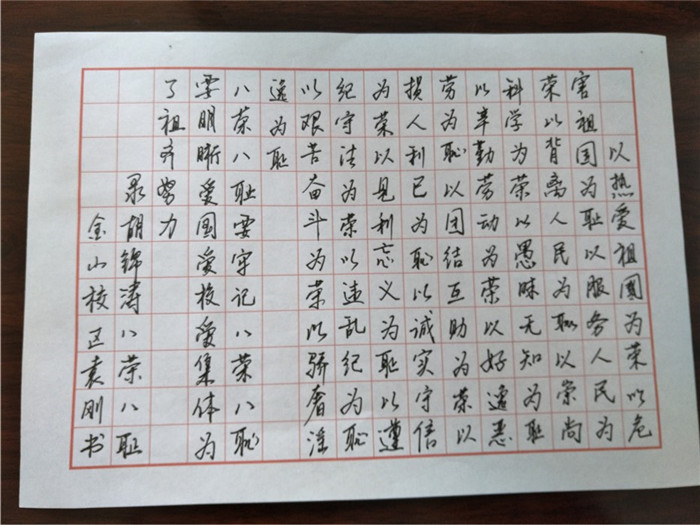 以热爱祖国为荣以危
害祖国为耻以服务人民为
荣以背离人民为耻以崇尚
科学为荣以愚昧无知为耻
以辛勤劳动为荣以好逸恶
劳为耻以团结互助为荣以
损人利己为耻以诚实守信
为荣以见利忘义为耻以遵
纪守法为荣以违乱纪为耻
以艰苦奋斗为荣以骄奢淫
逸为耻
八荣八耻要牢记八荣八耻
要明晰爱国爱校爱集体为
了祖齐努力
录胡锦涛八荣八耻
金山校区袁刚书